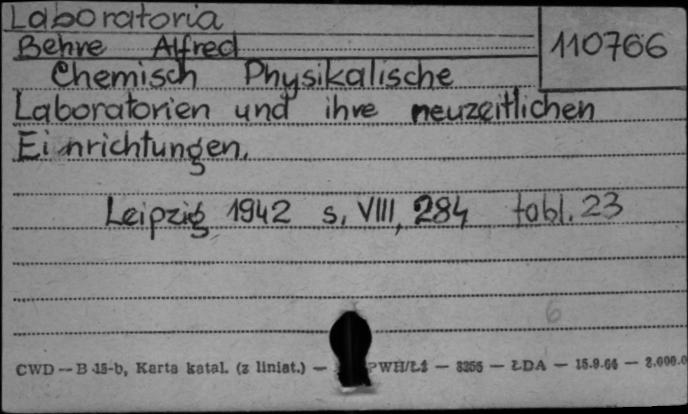 Laboratoria
110766
Behre Alfred
Chemisch Physikalische
Laboratorien und ihre neuzeitlichen
Einrichtungen.
Leipzig 1942 s. VIII, 284 tabl. 23
6
CWD — B 15-b, Karta katal. (z liniat.) — PWH/Łź — 3255 — ŁDA —